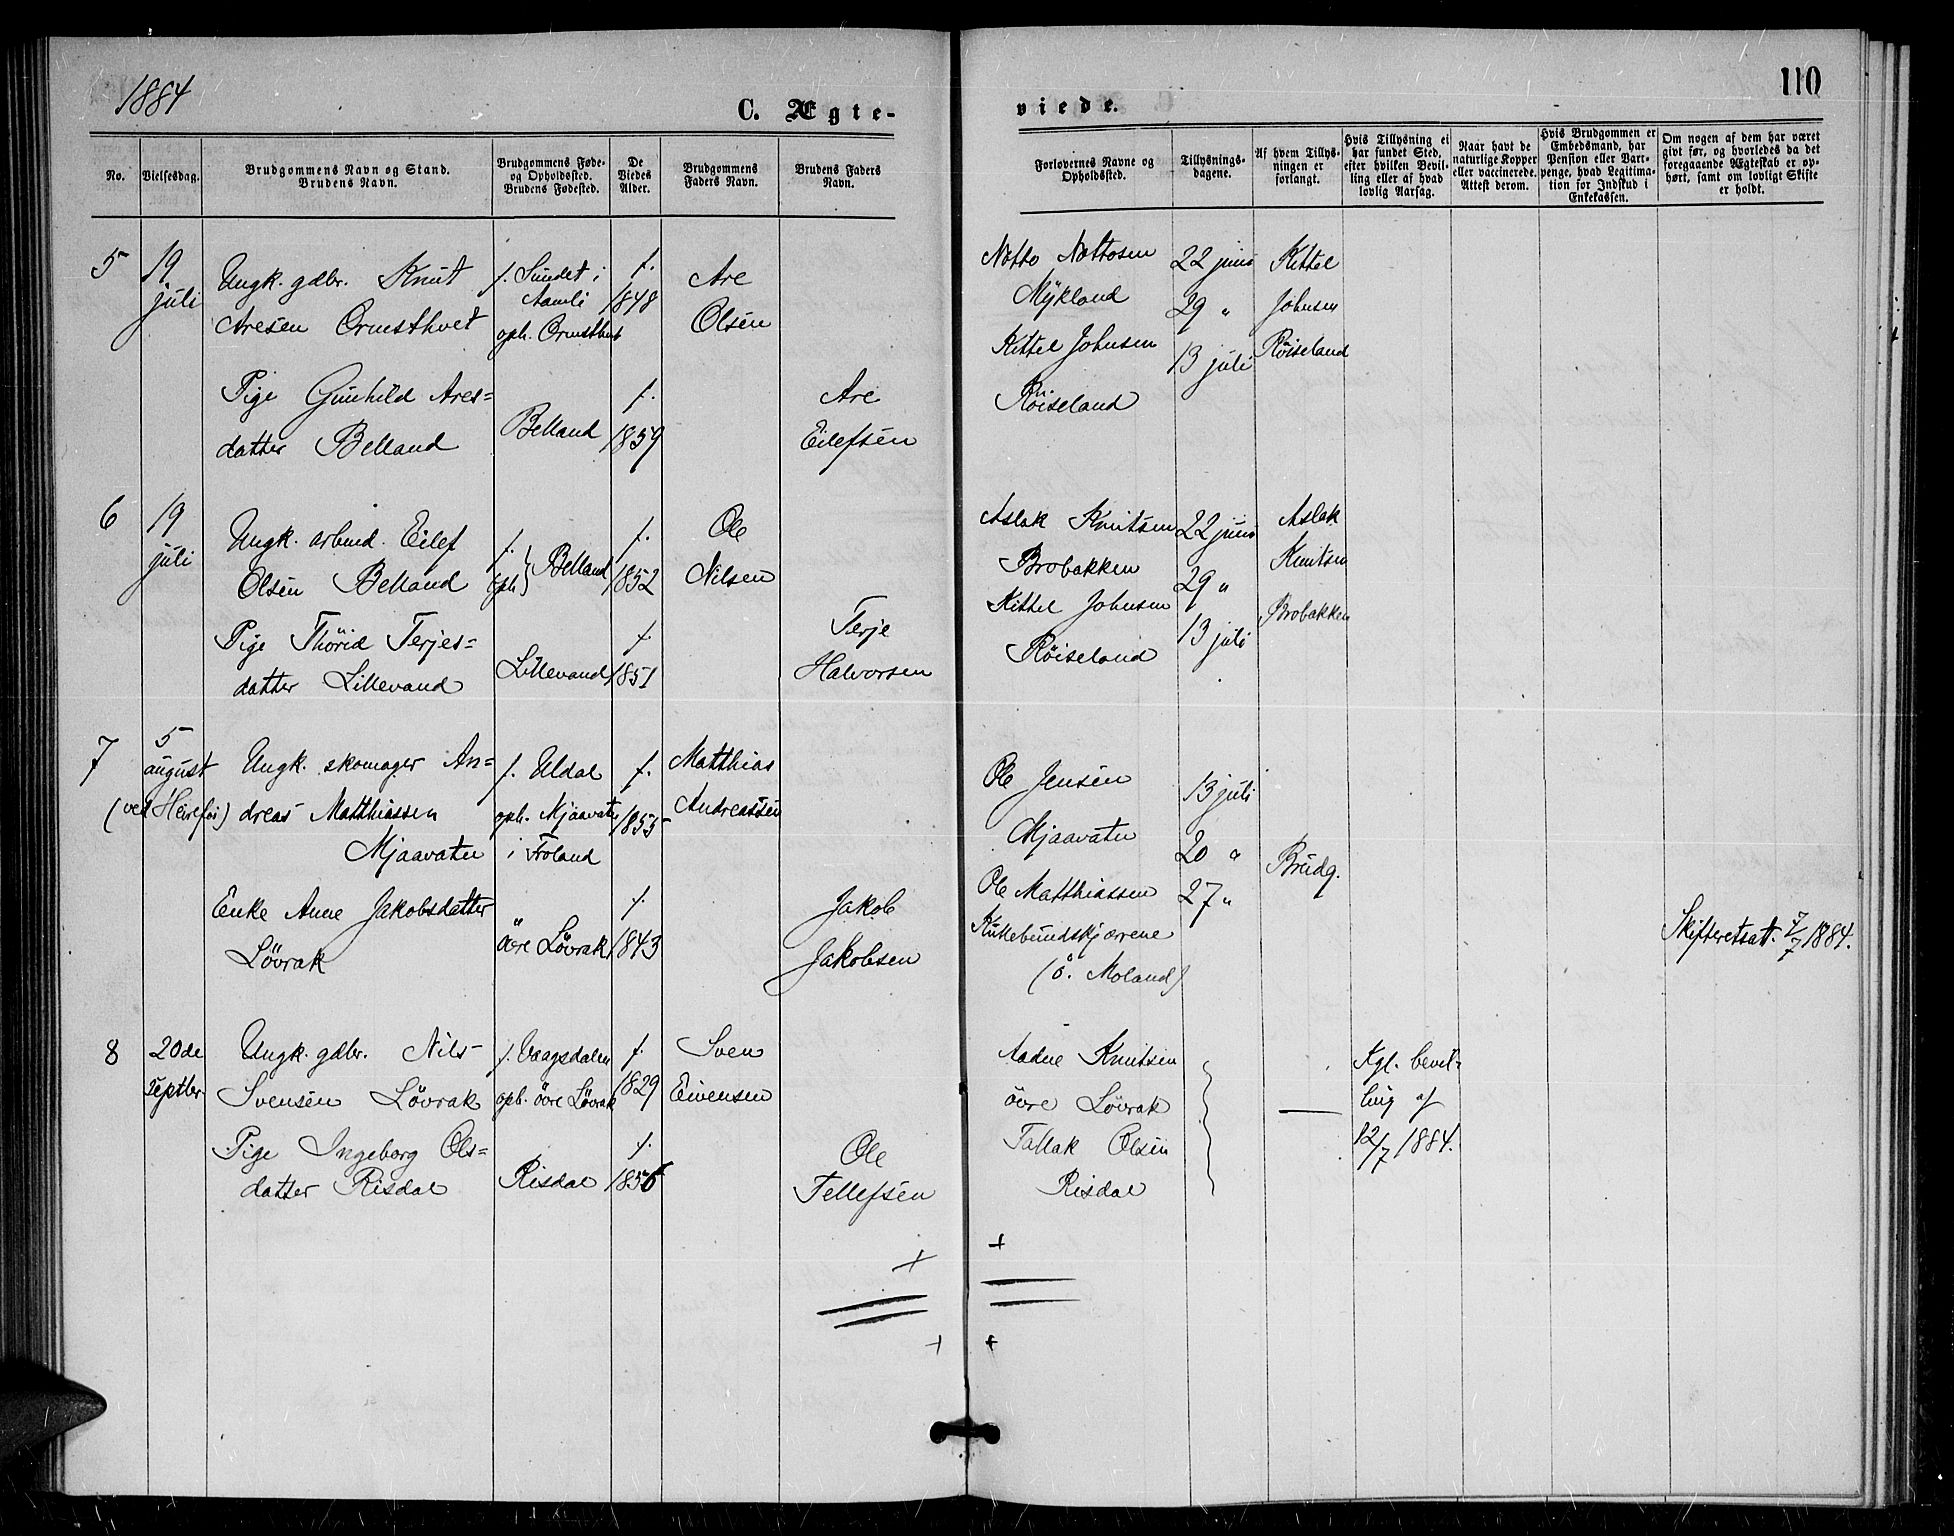 1884
C. Ægte-
viede.
110
No.
Vielsesdag.
Brudgommens Navn og Stand.
Brudens Navn.
Brudgommens Føde-
og Opholdssted.
Brudens Fødested.
De
Viedes
Alder.
Brudgommens
Faders Navn.
Brudens Faders
Navn.
Forlovernes Navne og
Opholdssted.
Tillysnings-
dagene.
Af hvem Tillys-
ningen er
forlangt.
Hvis Tillysning ei
har fundet Sted,
efter hvilken Bevil-
ling eller af hvad
lovlig Aarsag.
Naar havt de
naturlige Kopper
eller vaccinerede.
Attest derom.
Hvis Brudgommen er
Embedsmand, har
Pension eller Vart-
penge, hvad Legitima-
tion for Indskud i
Enkekassen.
Om nogen af dem har været
givt før, og hvorledes da det
foregaaende Ægteskab er op-
hørt, samt om lovligt Skifte
er holdt.
5
19
juli
Ungk. gdbr. Knut
Aresen Ormsthvet
f. Sundet i
Aamli
oph. Ormsthvet
f.
1848
Are
Olsen
Pige Gunhild Ares=
datter Belland
Belland
f.
1859
Are
Eilefsen
Notto Nottosen
Mykland
Kittel Johnsen
Röiseland
22 juni
29 "
13 juli
Kittel
Johnsen
Röiseland
6
19
juli
Ungk. arbmd. Eilef
Olsen Belland
f.
oph } Belland
f.
1852
Ole
Nilsen
Pige Thörid Terjes=
datter Lillevand
Lillevand
f.
1851
Terje
Halvorsen
Aslak Knutsen
Brobakken
Kittel Johnsen
Röiseland
22 juni
29 "
13 juli
Aslak
Knutsen
Brobakken
7
5
august
(ved Heirefos)
Ungk. skomager An=
dreas Matthiassen
Mjaavatn
f. Uldal
oph. Mjaavatn
i Froland
f.
1855
Matthias
Andreassen
Enke Anne Jakobsdatter
Lövrak
övre Lövrak
f.
1843
Jakob
Jakobsen
Ole Jensen
Mjaavatn
Ole Matthiassen
(ö. Moland)
13 juli
20 "
27 "
Brudg.
Skifteretsatt. 7/7 1884.
8
20de
Septbr
Ungk. gdbr. Nils
Svensen Lövrak
f. Vaagsdalen
oph. övre Lövrak
f.
1829
Sven
Eivensen
Pige Ingeborg Ols=
datter Risdal
Risdal
f.
1856
Ole
Tellefsen
Aadne Knutsen
övre Lövrak
Tallak Olsen
Risdal
Kgl. bevil=
ling af
12/7 1884.